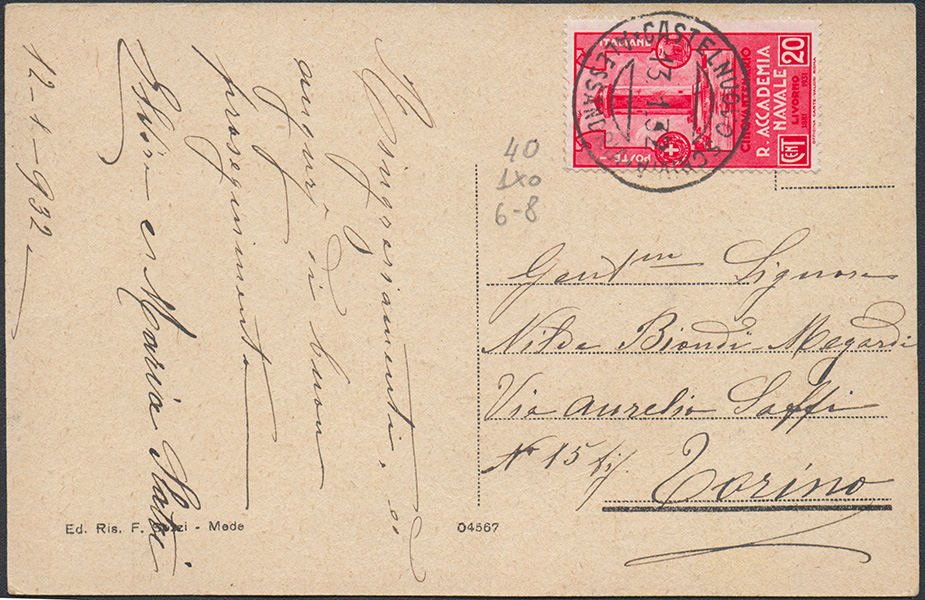 12-1-932
Ringraziamenti, ed
auguri di buon
proseguimento
e Maria
Ed. Ris. F. - Mede
04567
40
1x0
6-8
ITALIANE
POSTE
CINQUANTENARIO
R. ACCADEMIA
NAVALE
LIVORNO
1881 1931
20
CENT
CASTELNUOVO SCRIVIA
ALESSANDRIA
13.1.32
Gent.ma Signora
Nilde Biondi-Megardi
Via Aurelio Saffi
N° 15 bis.
Torino